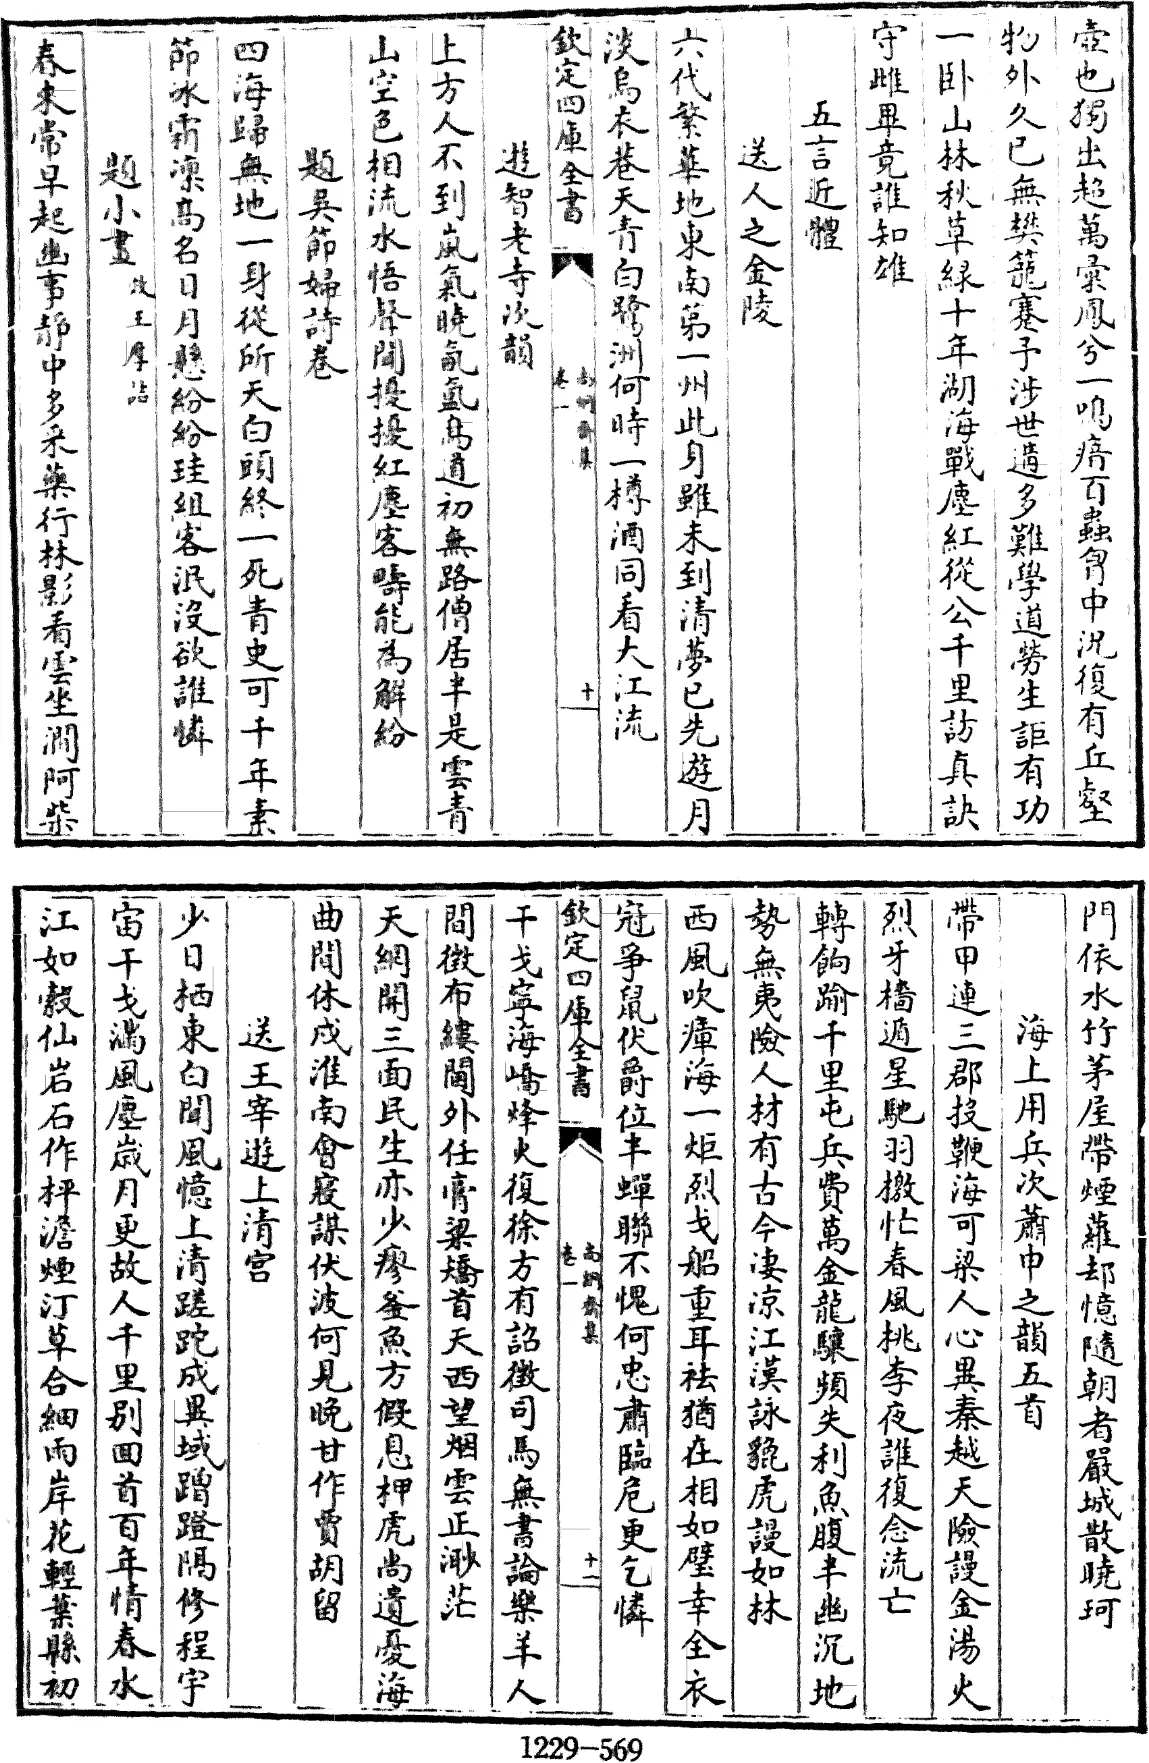 壺也獨出超萬彙鳳兮一鳴瘖百蟲胷中況復有丘壑
物外久已無樊籠蹇予涉世遘多難學道勞生詎有功
一卧山林秋草緑十年湖海戰塵紅從公千里訪真訣
守雌畢竟誰知雄
五言近體
送人之金陵
六代繁華地東南第一州此身雖未到清夢已先遊月
淡烏衣巷天青白鷺洲何時一樽酒同看大江流
欽定四庫全書
尚絅齋集
卷一
十
遊智老寺次韻
上方人不到嵐氣曉氤氳鳥道初無路僧居半是雲青
山空色相流水悟聲聞擾擾紅塵客疇能為解紛
題吳節婦詩卷
四海歸無地一身從所天白頭終一死青史可千年素
節冰霜凛高名日月懸紛紛珪組客泯沒欲誰憐
題小畫 效王摩詰
春來常早起幽事靜中多采藥行林影看雲坐澗阿柴
門依水竹茅屋帶煙蘿却憶隨朝者嚴城散曉珂
海上用兵次蕭申之韻五首
帶甲連三郡投鞭海可梁人心異秦越天險謾金湯火
烈牙檣遁星馳羽檄忙春風桃李夜誰復念流亡
轉餉踰千里屯兵費萬金龍驤頻失利魚腹半幽沉地
勢無夷險人材有古今凄凉江漢詠貔虎謾如林
西風吹瘴海一炬烈戈船重耳祛猶在相如璧幸全衣
冠爭鼠伏爵位半蟬聯不愧何忠肅臨危更乞憐
欽定四庫全書
尚絅齋集
卷一
十一
干戈寧海嶠烽火復徐方有詔徵司馬無書論樂羊人
間徵布縷閫外任膏粱矯首天西望烟雲正渺茫
天網開三面民生亦少瘳釜魚方假息柙虎尚遺憂海
曲間休戍淮南會寢謀伏波何見晚甘作賈胡留
送王宰遊上清宫
少日栖東白聞風憶上清蹉跎成異域蹭蹬隔修程宇
宙干戈滿風塵歲月更故人千里别回首百年情春水
江如縠仙岩石作枰澹煙汀草合細雨岸花輕葉縣初
1229-569